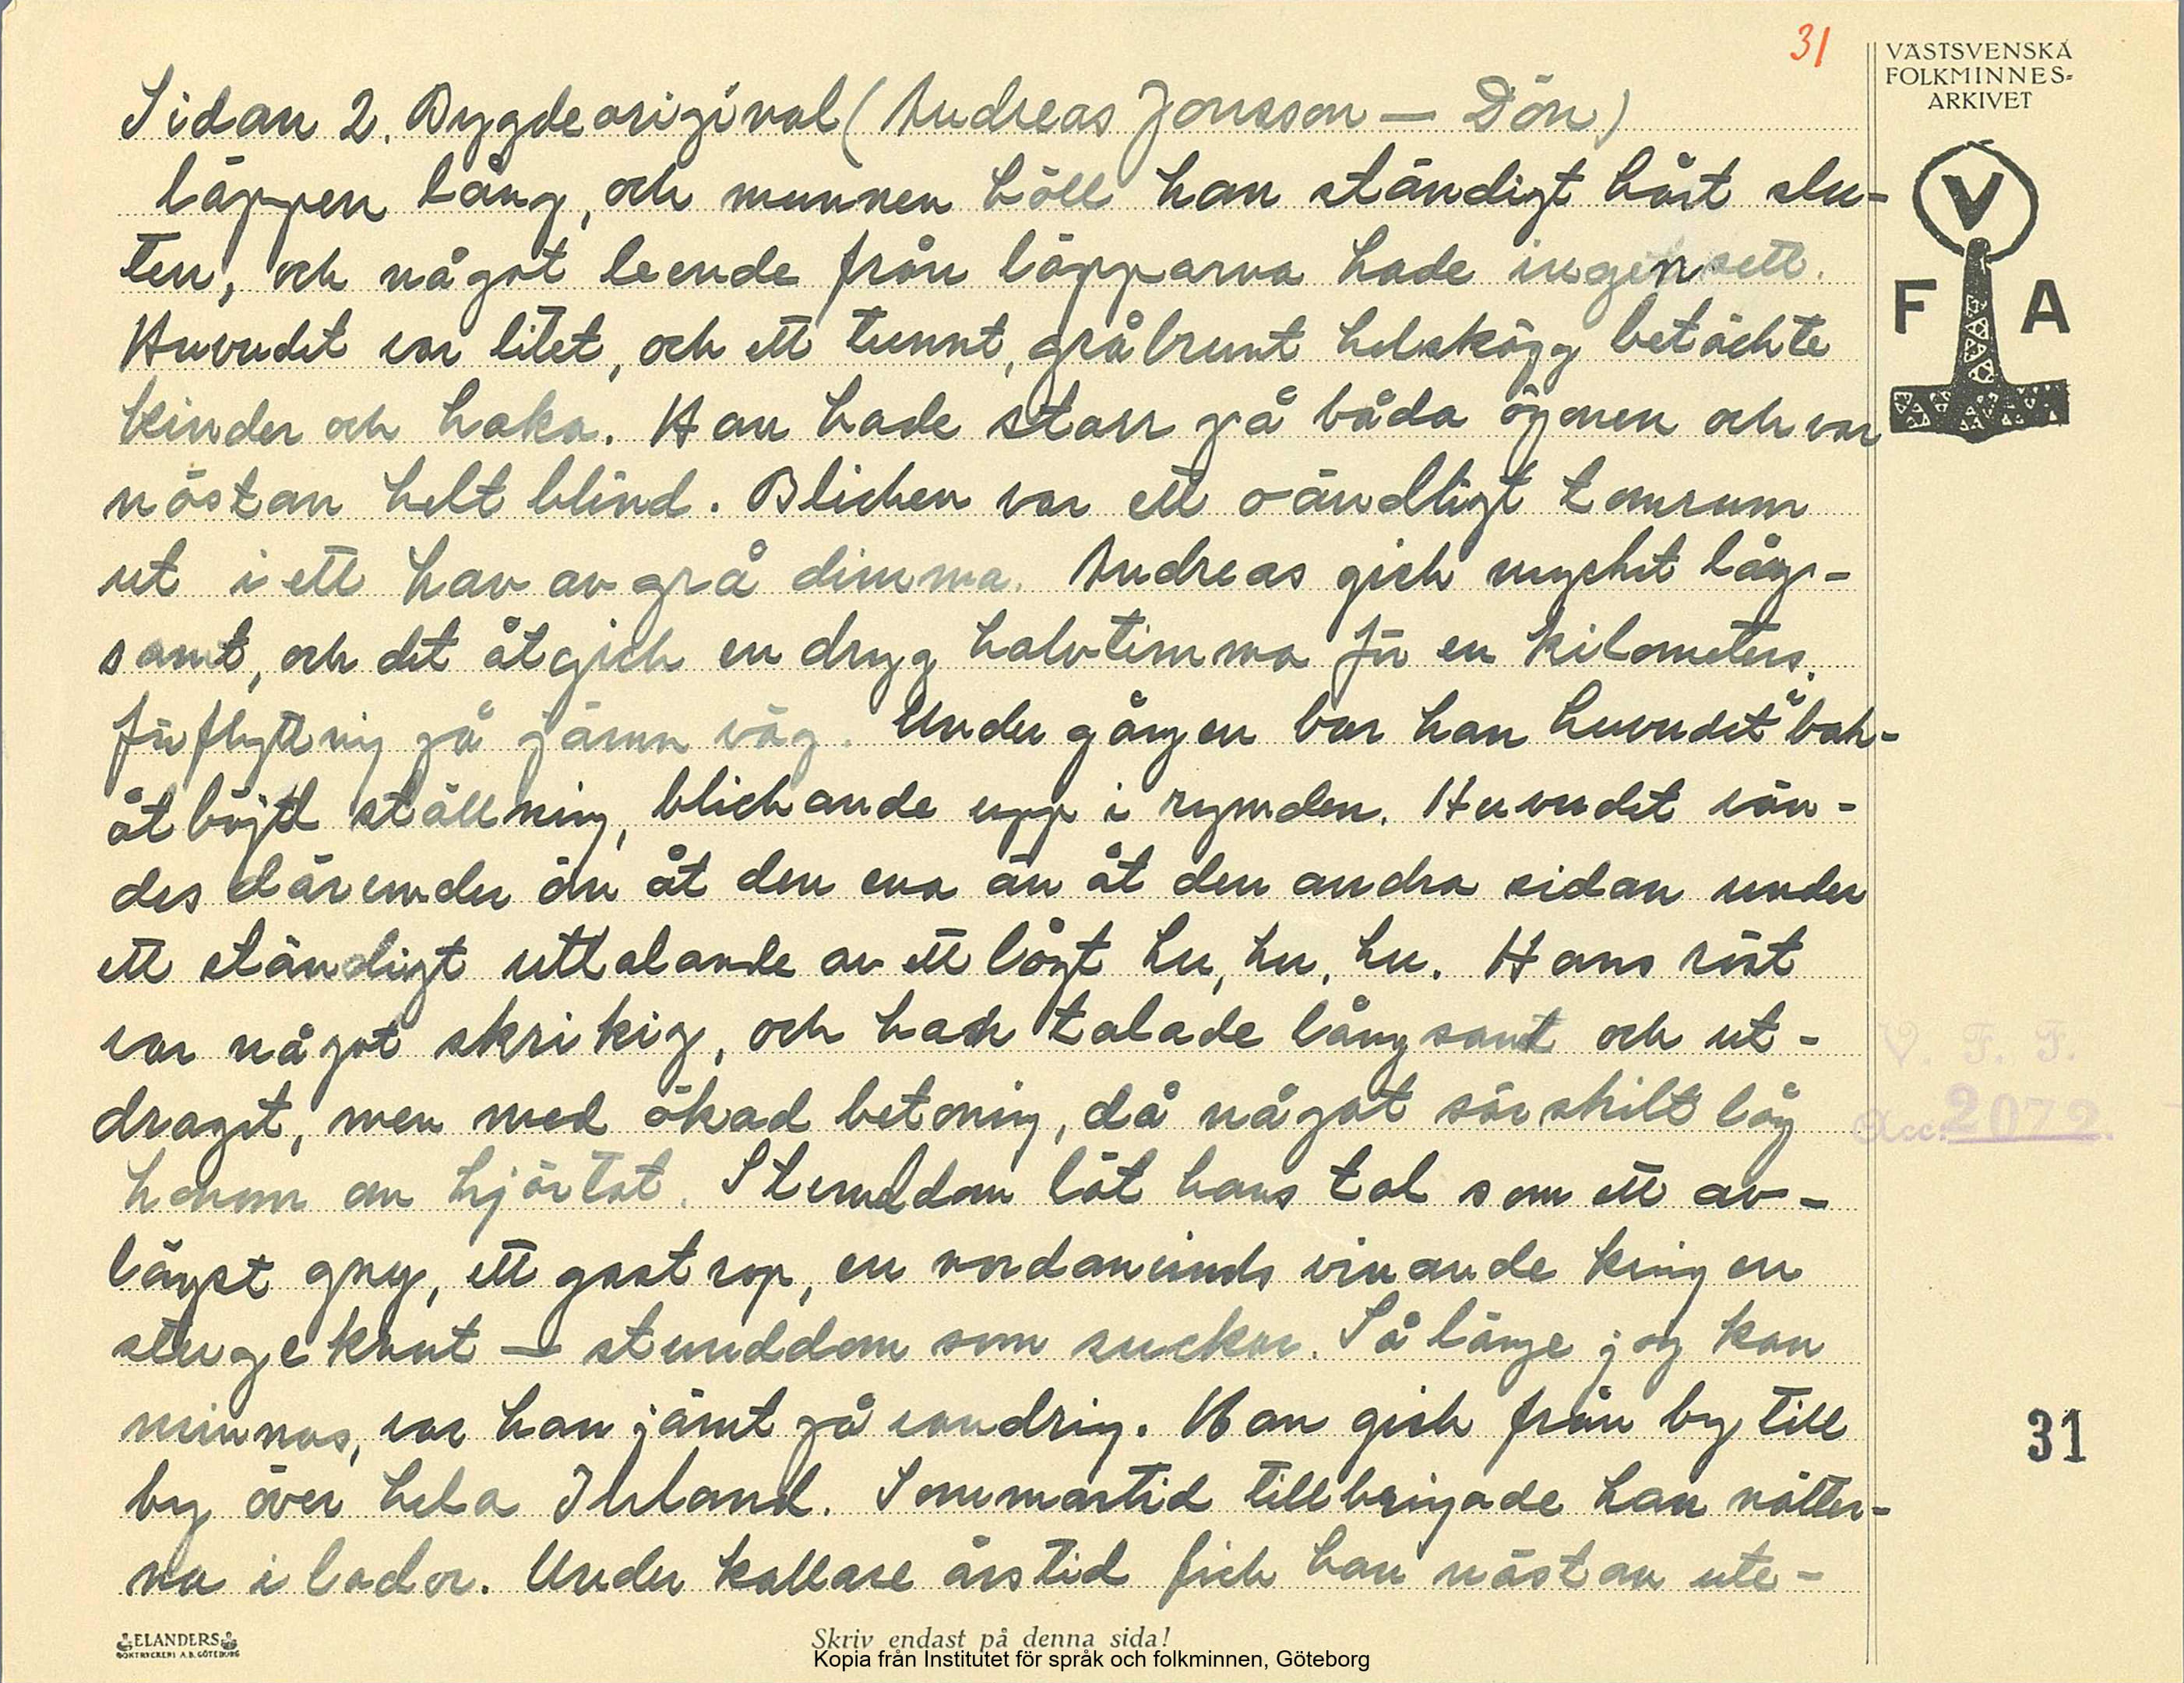 31
VÄSTSVENSKA
FOLKMINNES-
ARKIVET
V
F A
Sidan 2. Bygdeoriginal (Andreas Jonsson — Dön)
läppen lång, och munnen höll han ständigt hårt slu-
ten, och något leende från läpparna hade ingen sett.
Huvudet var litet, och ett tunnt, gråbrunt helskägg betäckte
kinder och haka. Han hade starr på båda ögonen och var
nästan helt blind. Blicken var ett oändligt tomrum
ut i ett hav av grå dimma. Andreas gick mycket lång-
samt, och det åtgick en dryg halvtimma för en kilometers
förflyttning på jämn väg. Under gången bar han huvudet bak-
åt böjd ställning, blickande upp i rymden. Huvudet vän-
des därunder än åt den ena än åt den andra sidan under
ett ständigt uttalande av ett lågt hu, hu, hu. Hans röst
var något skrikig, och han talade långsamt och ut-
draget, men med ökad betoning, då något särskilt låg
honom om hjärtat. Stunddom lät hans tal som ett av-
lägst gny, ett gastrop, en nordanvinds vinande kring en
stugeknut — stunddom som suckar. Så länge jag kan
minnas, var han jämt på vandring. Han gick från by till
by över hela Inland. Sommartid tillbringade han nätter-
na i lador. Under kallare årstid fick han nästan ute-
V. F. F.
Acc. 2072.
31
ELANDERS
BOKTRYCKERI A.B. GÖTEBORG
Skriv endast på denna sida!
Kopia från Institutet för språk och folkminnen, Göteborg